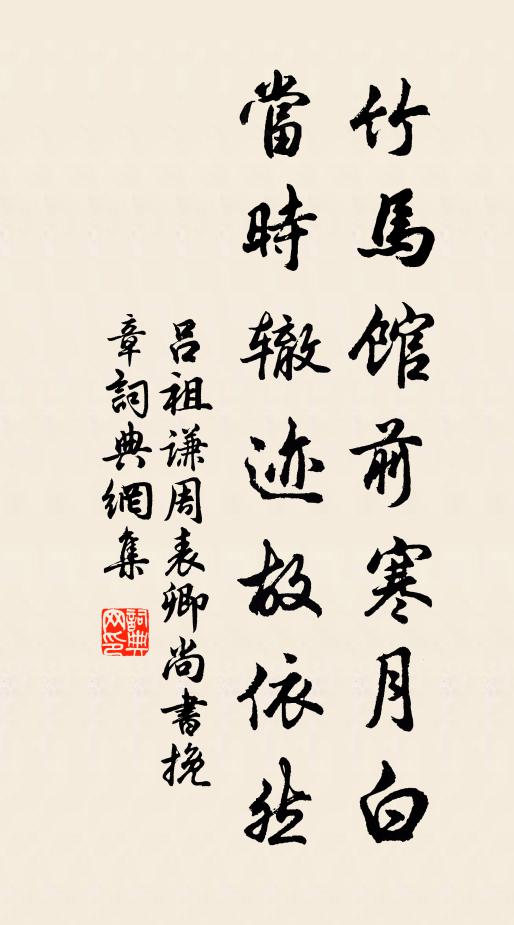 竹馬館前寒月白
當時轍迹故依然
吕祖謙周表卿尚書挽
章詞典網集
詞典
网印